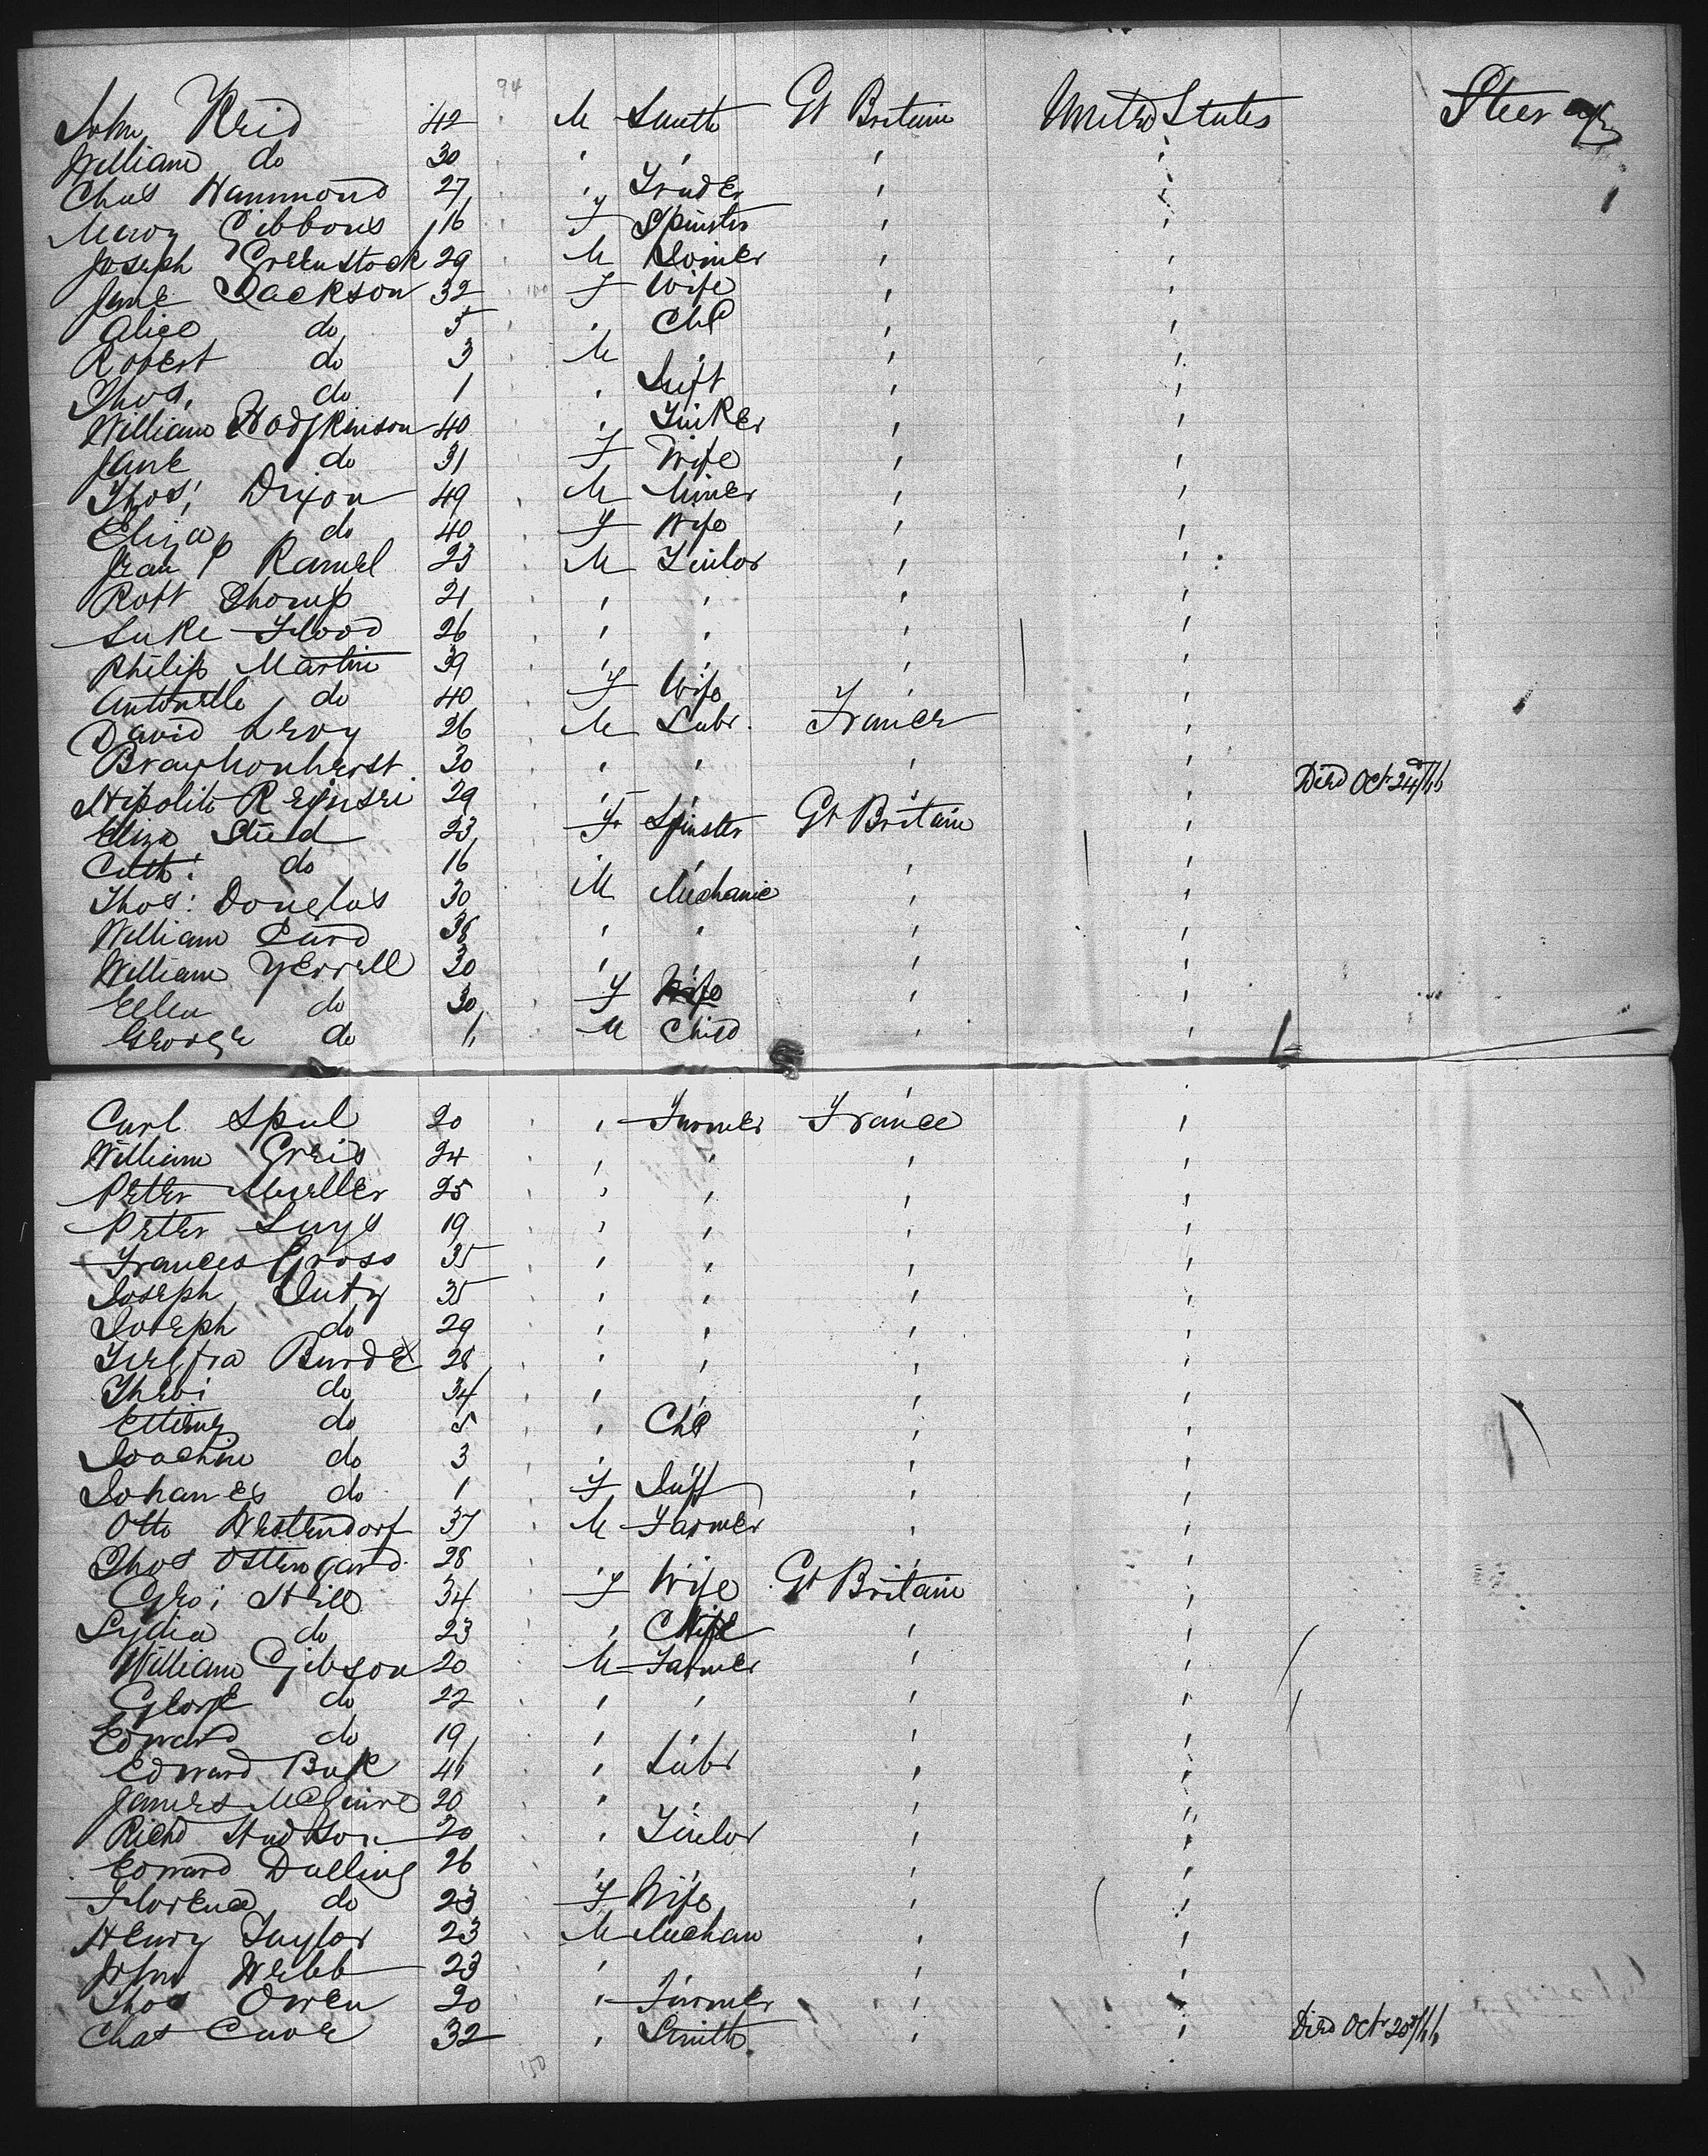 94
John Reid 42 M Smith Gt Britain United States Steerage
William do 30 " " " "
Chas Hammond 27 " Trader " "
Mary Gibbons 16 F Spinster " "
Joseph Greenstock 29 M Joiner " "
Jane Jackson 32 100 F Wife " "
Alice do 5 " Chd " "
Robert do 3 M " " "
Thos. do 1 " Inft " "
William Hodgkinson 40 " Tinker " "
Jane do 31 F Wife " "
Thos: Dixon 49 M Miner " "
Eliza do 40 F Wife " "
Jean P Ramel 23 M Tailor " "
Robt Thorup 21 " " " "
Luke Flood 26 " " " "
Philip Martin 39 " " " "
Antonelle do 40 F Wife " "
David Levy 26 M Labr. France "
30 " " " " Died Oct 24th/66
Hipolite 29 " " " "
Eliza Steed 23 F Spinster Gt Britain "
Cath: do 16 " " " "
Thos: Douglas 30 M Mechanic " "
William Card 38 " " " "
William Yerrell 30 " " " "
Ellen do 30 F Wife " "
George do 1 M Child " "
Carl Spul 20 " Farmer France "
William Greis 24 " " " "
Peter Mueller 25 " " " "
Peter Luys 19 " " " "
Frances Gross 35 " " " "
Joseph Duty 35 " " " "
Joseph do 29 " " " "
Burde 28 " " " "
do 34 " " " "
do 5 " Chd " "
Joachim do 3 " " " "
Johanes do 1 F Inft " "
Otto Westendorf 37 M Farmer " "
Thos Ostengard 28 " " " "
Geo: Hill 34 F Wife Gt Britain "
Lydia do 23 " " "
William Gibson 20 M Farmer " "
George do 22 " " " "
Edward do 19 " " " "
Edward 41 " Labr " "
James McGuire 20 " " " "
Richd Hudson 20 " Tailor " "
Edward Dulling 26 " " " "
Florence do 23 F Wife " "
Henry Taylor 23 M Mechan " "
John Webb 23 " " " "
Thos Owen 20 " Farmer " "
Chas 32 " Smith " " Died Oct 20th/66
150